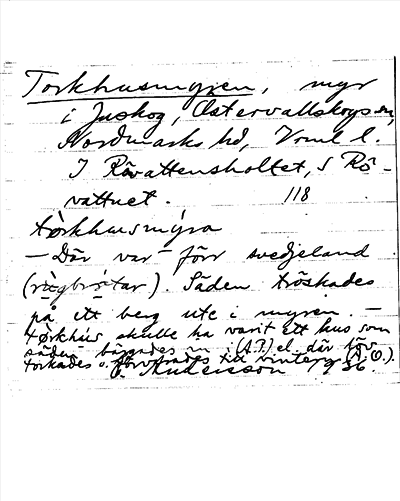 Torkhusmyren, myr
i Juskog, Östervallskogs sn,
Nordmarks hd, Vrml l.
I Rövattensholtet, S Rö-
vattnet. 118
tòrkhusmýra
– Där var förr svedjeland
(rùgbròtar). Säden tröskades
på ett berg ute i myren. –
tòrkhús skulle ha varit ett hus som
säden bärgades in (A.P.) el. där töv
torkades o. förvarades till vintern (A.O.).
Andersson 1936.